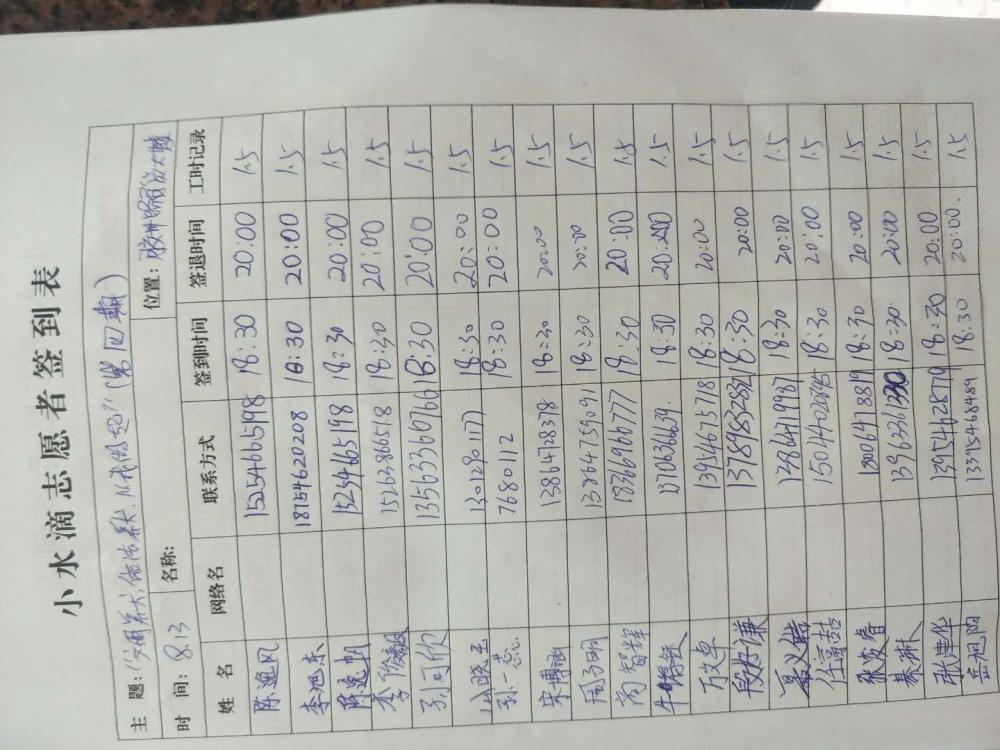 小水滴志愿者签到表
主 题:“文明养犬,依法养犬,从我做起”(第四期)
时 间: 8.13 名称: 位置: 胶州
姓 名 网络名 联系方式 签到时间 签退时间 工时记录
陈逸风 15254665198 18:30 20:00 1.5
李旭东 18754620208 18:30 20:00 1.5
陈逸朝 15254665198 18:30 20:00 1.5
李俊毅 15263866518 18:30 20:00 1.5
孙可欣 13563360766 18:30 20:00 1.5
晓玉 13012901177 18:30 20:00 1.5
孙一蕊 7680112 18:30 20:00 1.5
宋博涵 13864728378 18:30 20:00 1.5
周子明 13264759091 18:30 20:00 1.5
尚智辉 18369166777 18:30 20:00 1.5
牛 13706366639 18:30 20:00 1.5
万文卓 13946675718 18:30 20:00 1.5
段好谦 18:30 20:00 1.5
聂义皓 13864719987 18:30 20:00 1.5
任富喆 18:30 20:00 1.5
张凌睿 18006478819 18:30 20:00 1.5
綦琳 18:30 20:00 1.5
张建华 13954628779 18:30 20:00 1.5
岳旭阳 13395468489 18:30 20:00. 1.5